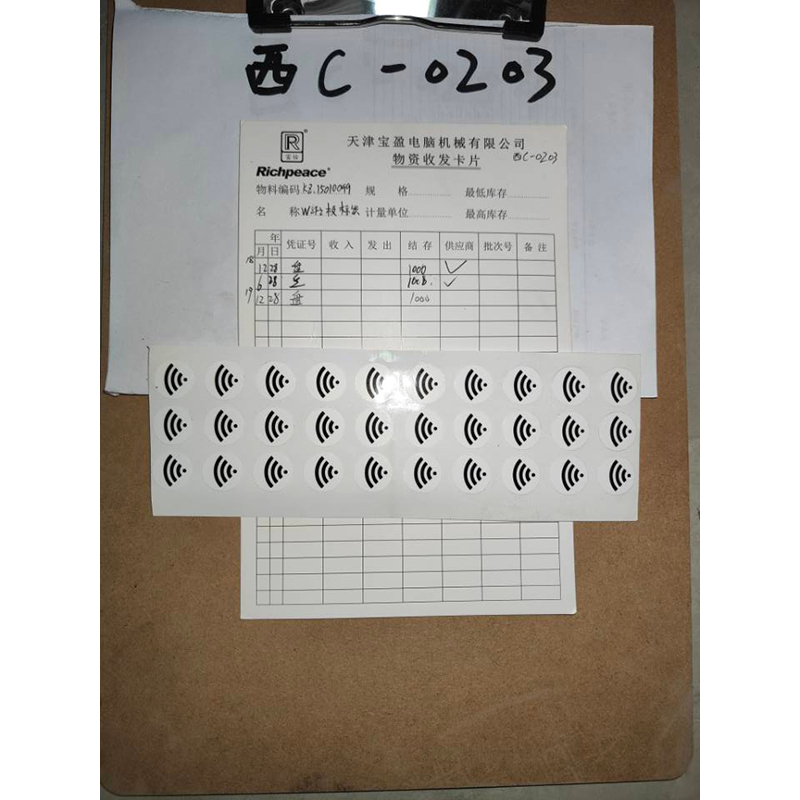 西C-0203
R
宝盈
天津宝盈电脑机械有限公司
物资收发卡片 西C-0203
Richpeace
物料编码 K3.15010049 规 格 最低库存
名 称 WiFi板标签 计量单位 最高库存
年
月 日 凭证号 收 入 发 出 结 存 供应商 批次号 备 注
18 12 28 盘 1000 ✓
6 28 1000. ✓
19 12 28 盘 1000